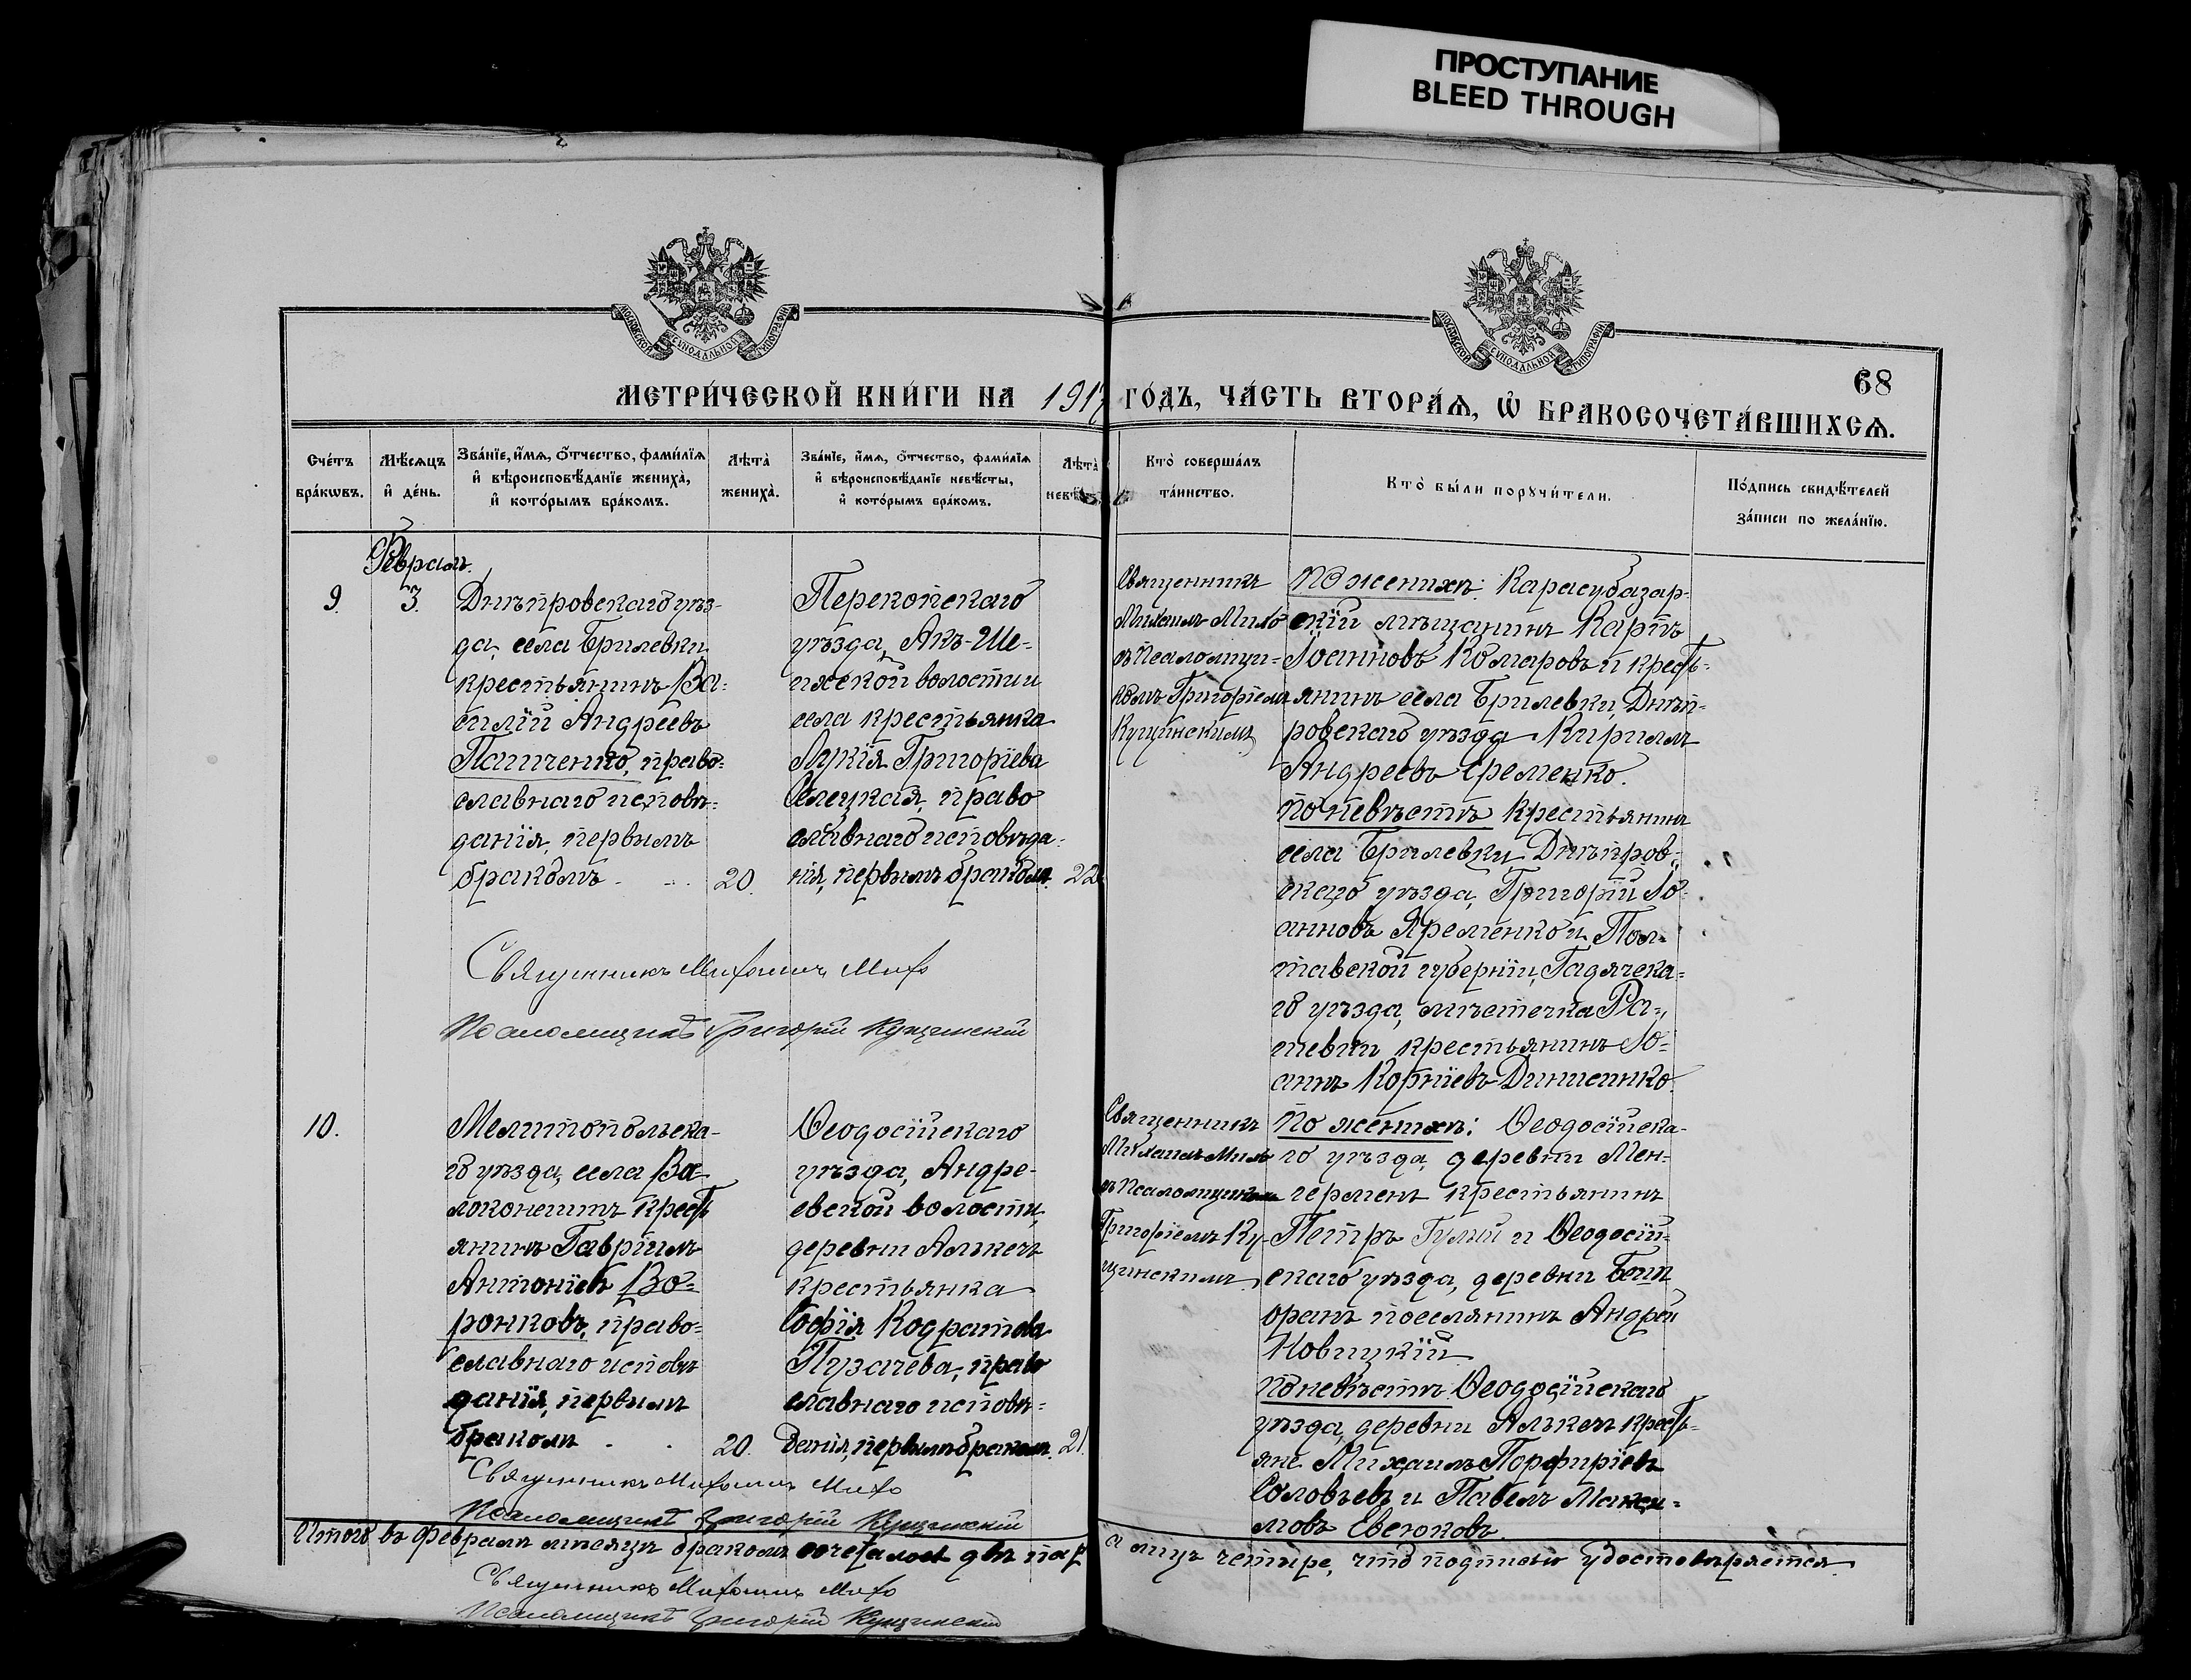 ПРОСТУПАНИЕ
BLEED THROUGH
МОСКОВСКОЙ СѴНОДАЛЬНОЙ ТИПОГРАФІИ
МОСКОВСКОЙ СѴНОДАЛЬНОЙ ТИПОГРАФІИ
68
МЕТРИ́ЧЕСКОЙ КНИ́ГИ НА 1917 ГО́ДЪ, ЧА́СТЬ ВТОРА́Ѧ, Ѡ҆ БРАКОСОЧЕТА́ВШИХСѦ.
Сче́тъ
бра́кѡвъ.
Мѣ́сѧцъ
и҆ де́нь.
Зва́нїе, и҆́мѧ, ѻ҆́тчество, фами́лїѧ
и҆ вѣроисповѣ́данїе жениха̀,
и҆ кото́рымъ бра́комъ.
Лѣ́та
жениха̀.
Зва́нїе, и҆́мѧ, ѻ҆́тчество, фами́лїѧ
и҆ вѣроисповѣ́данїе невѣ́сты,
и҆ кото́рымъ бра́комъ.
Лѣ́та
невѣ́
Кто̀ соверша́лъ
та́инство.
Кто̀ бы́ли порꙋчи́тели.
По́дпись свидѣ́телей
за́писи по жела́нїю.
Февраль.
9.
3.
Днѣпровскаго уѣз-
да, села Брилевки
крестьянинъ Ва-
силій Андреевъ
Панченко, право-
славнаго исповѣ-
данія, первымъ
бракомъ
20.
Перекопскаго
уѣзда, Акъ-Ше-
ихской волости и
села крестьянка
Лукія Григоріева
Селецкая, право
славнаго исповѣда-
нія, первымъ бракомъ.
22
Священникъ
Михаилъ Михо
съ Псаломщи-
комъ Григоріемъ
Кущинскимъ
По женихѣ: Карасубазар-
скій мѣщанинъ Карпъ
Іоанновъ Комаровъ и кресть-
янинъ села Брилевки, Днѣп-
ровскаго уѣзда Кириллъ
Андреевъ Еременко.
По невѣстѣ крестьянинъ
села Брилевки Днѣпров-
скаго уѣзда, Григорій Іо-
анновъ Яременко и Пол-
тавской губерніи, Гадячска-
го уѣзда, мѣстечка Ра-
шевки крестьянинъ Іо-
аннъ Корніевъ
Священникъ Михаилъ Михо
Псаломщикъ Григорій Кущинскій
10.
Мелитопольска-
го уѣзда, села Ва
крест
янинъ Гавріилъ
Антоніевъ Во-
ронковъ, право-
славнаго исповѣ
данія, первымъ
бракомъ
20.
Ѳеодосійскаго
уѣзда, Андре-
евской волости,
деревни Алкечъ
крестьянка
Софія Кодратова
Пузачева, право
славнаго исповѣ-
данія, первымъ бракомъ.
21.
Священникъ
Михаилъ Михо
съ Псаломщикомъ
Григоріемъ Ку-
щинскимъ
По женихѣ: Ѳеодосійска-
го уѣзда, деревни Мен-
герменъ крестьянинъ
Петръ Гулый и Ѳеодосій-
скаго уѣзда, деревни Беш
оранъ поселянинъ Андрей
Новицкій
По невѣстѣ Ѳеодосійскаго
уѣзда, деревни Алькечъ кресть-
яне Михаилъ Порфиріевъ
Соловьевъ и Павелъ Макси-
мовъ Евсюковъ.
Священникъ Михаилъ Михо
Псаломщикъ Григорій Кущинскій
Итого въ февралѣ мѣсяцѣ бракомъ сочеталось двѣ пар а лицъ четыре, что подписью удостовѣряется.
Священникъ Михаилъ Михо
Псаломщикъ Григорій Кущинскій